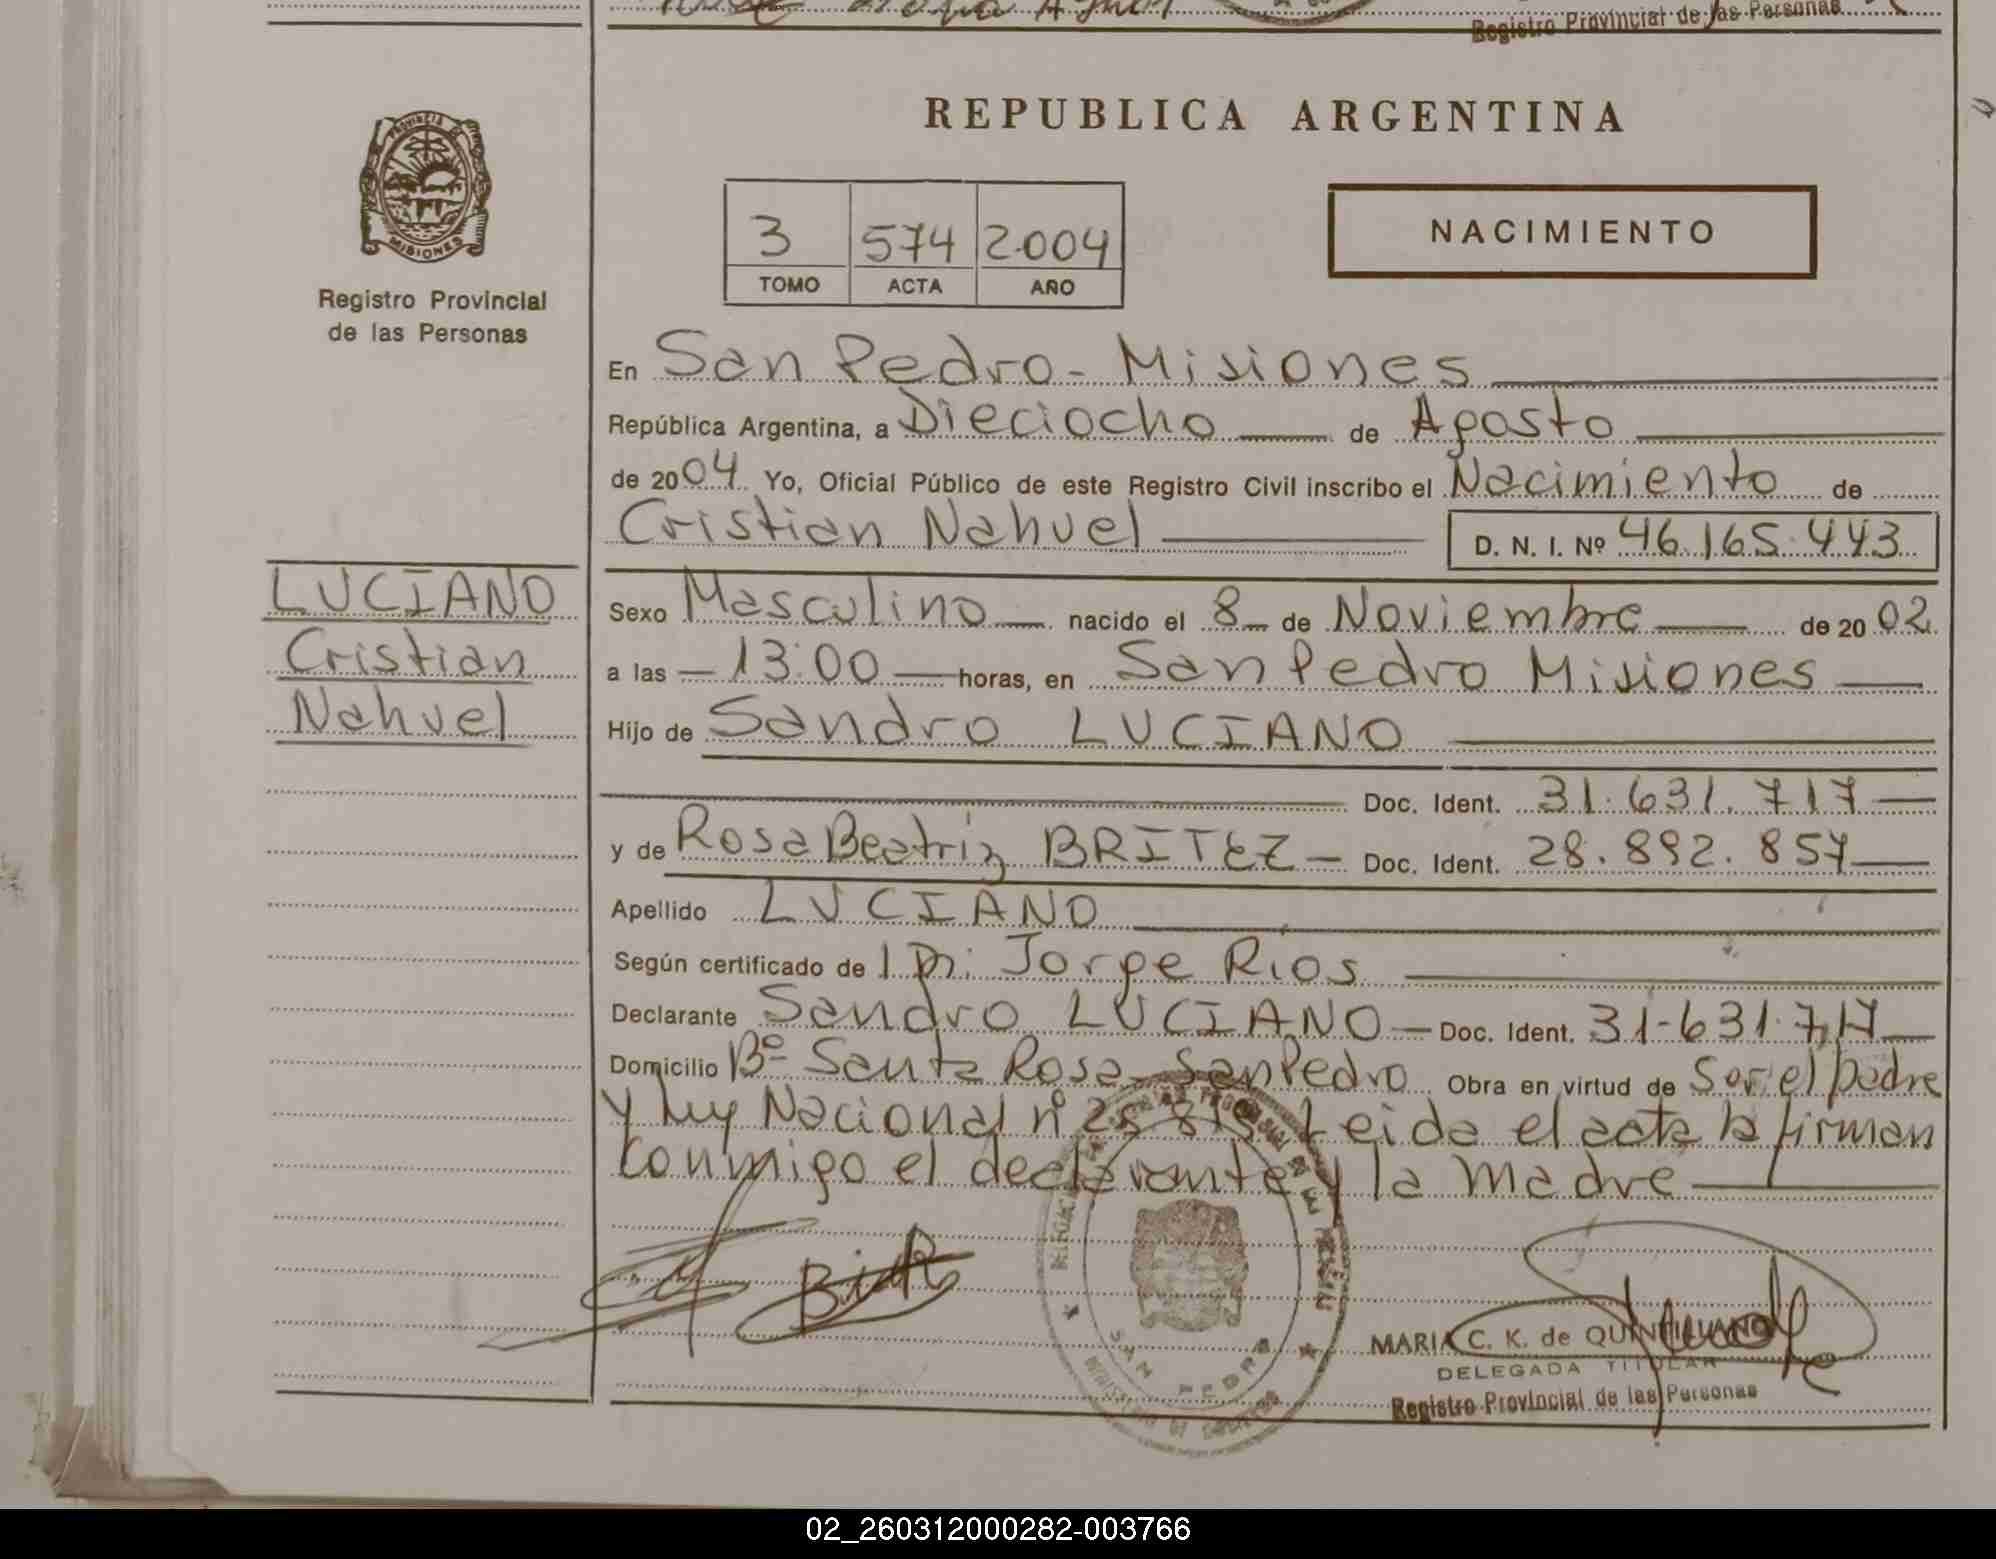 Registro Provincial de las Personas
PROVINCIA DE
MISIONES
Registro Provincial
de las Personas
REPUBLICA ARGENTINA
3 574 2004
TOMO ACTA AÑO
NACIMIENTO
En San Pedro - Misiones
República Argentina, a Dieciocho de Agosto
de 2004 Yo, Oficial Público de este Registro Civil inscribo el Nacimiento de
Cristian Nahuel D. N. I. Nº 46.165.443
LUCIANO
Cristian
Nahuel
Sexo Masculino nacido el 8 de Noviembre de 2002
a las 13:00 horas, en San Pedro Misiones
Hijo de Sandro LUCIANO
Doc. Ident. 31.631.717
y de Rosa Beatriz BRITEZ Doc. Ident. 28.892.857
Apellido LUCIANO
Según certificado de Jorge Rios
Declarante Sandro LUCIANO Doc. Ident. 31-631.717
Domicilio Bº Santa Rosa San Pedro Obra en virtud de Ser el padre
y Ley Nacional nº 25 819 Leida el acta la firman
conmigo el declarante y la madre
SAN PEDRO
MARIA C. K. de QUINTILIANO
DELEGADA TITULAR
Registro Provincial de las Personas
02_260312000282-003766